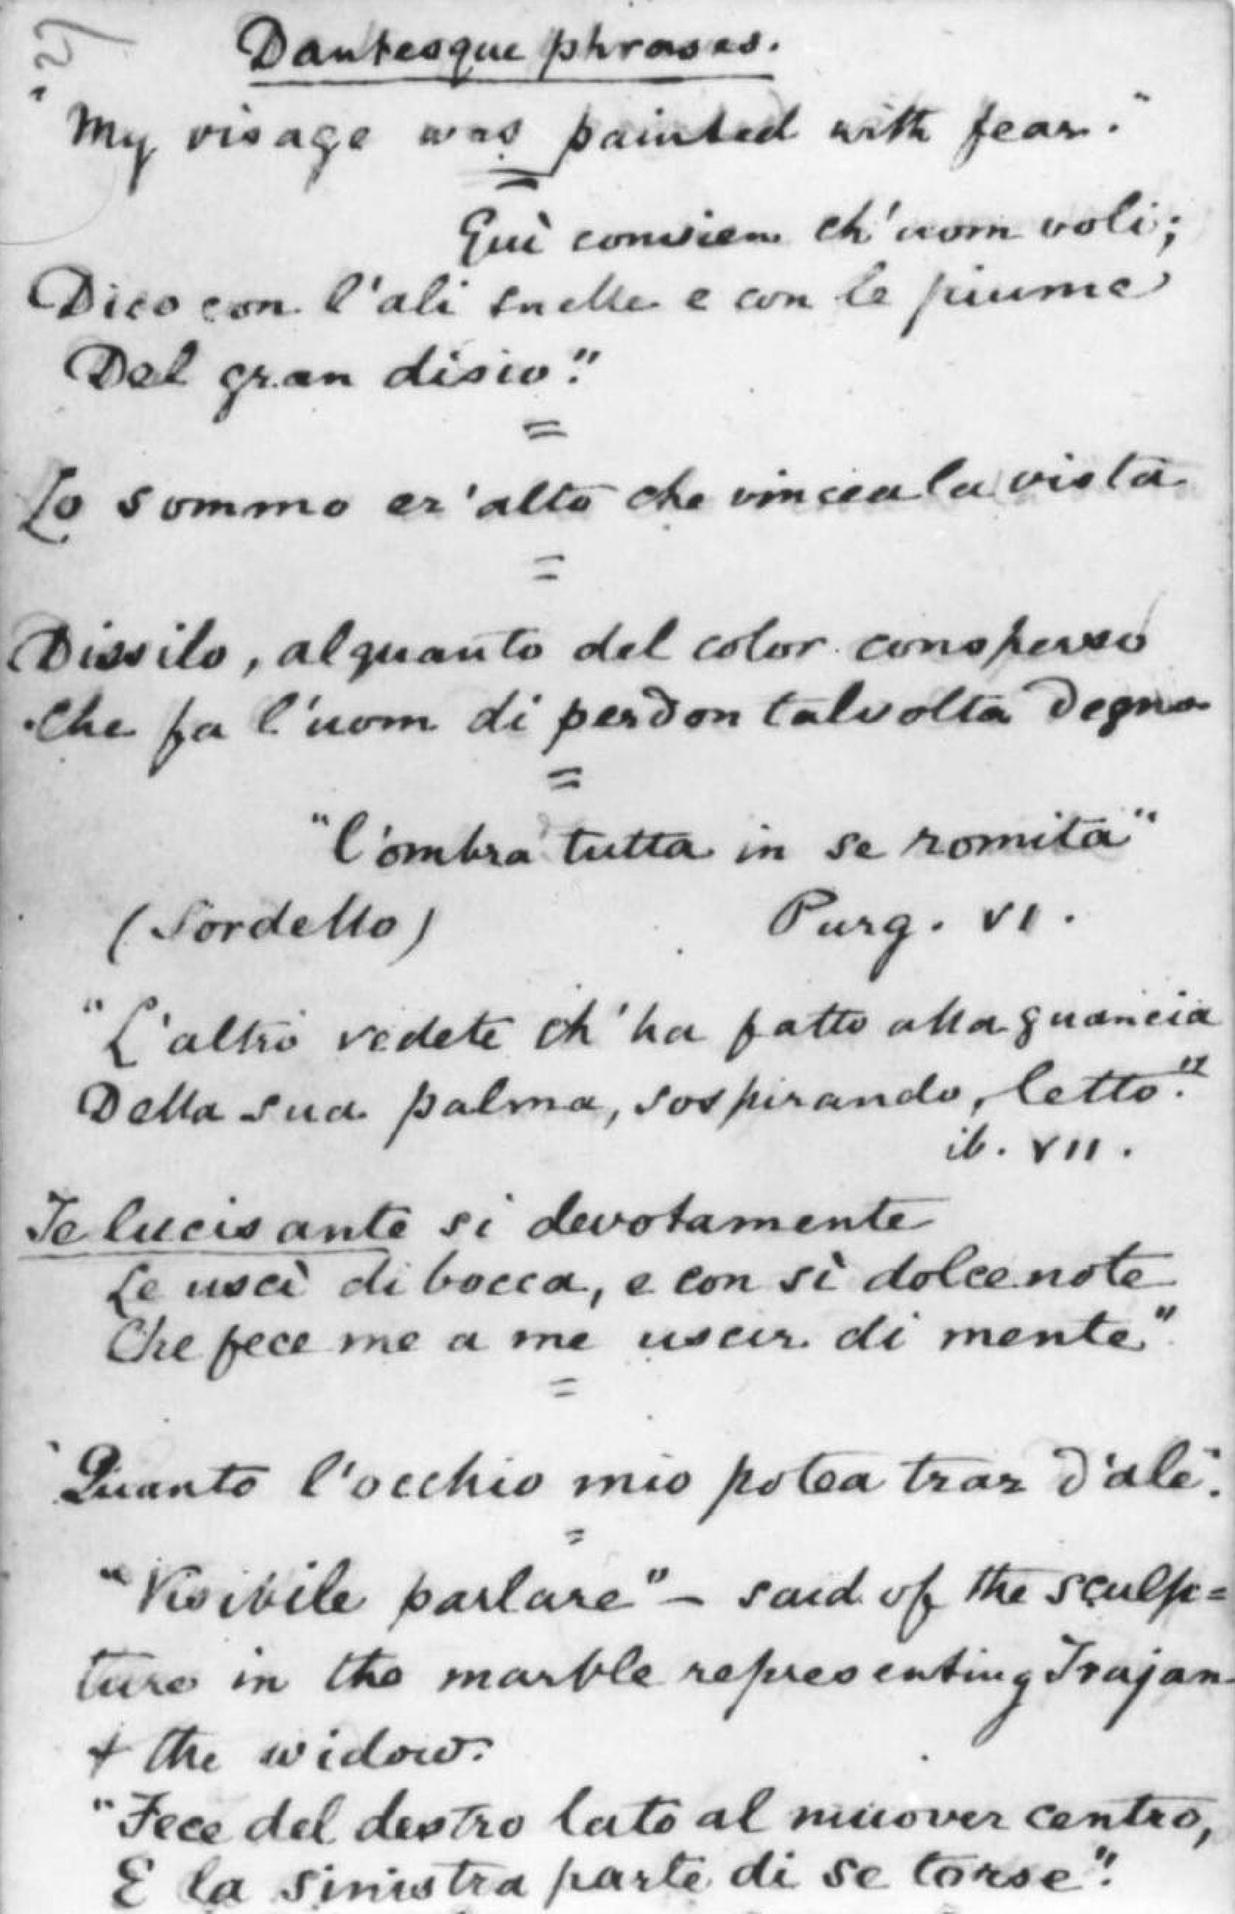 27
Dantesque phrases.
"My visage was painted with fear."
Qui convien ch'uom voli;
Dico con l'ali snelle e con le piume
Del gran disio."
=
Lo sommo er'alto che vincea la vista
=
Dissilo, alquanto del color consperso
Che fa l'uom di perdon talvolta degno
=
"l'ombra tutta in se romita"
(Sordello) Purg. VI.
"L'altro vedete ch'ha fatto alla guancia
Della sua palma, sospirando, letto."
ib. VII.
Te lucis ante si devotamente
Le uscì di bocca, e con sì dolce note
Che fece me a me uscir di mente"
=
"Quanto l'occhio mio potea trar d'ale".
=
"Visibile parlare" – said of the sculp=
ture in the marble representing Trajan
& the widow.
"Fece del destro lato al muover centro,
E la sinistra parte di se torse".